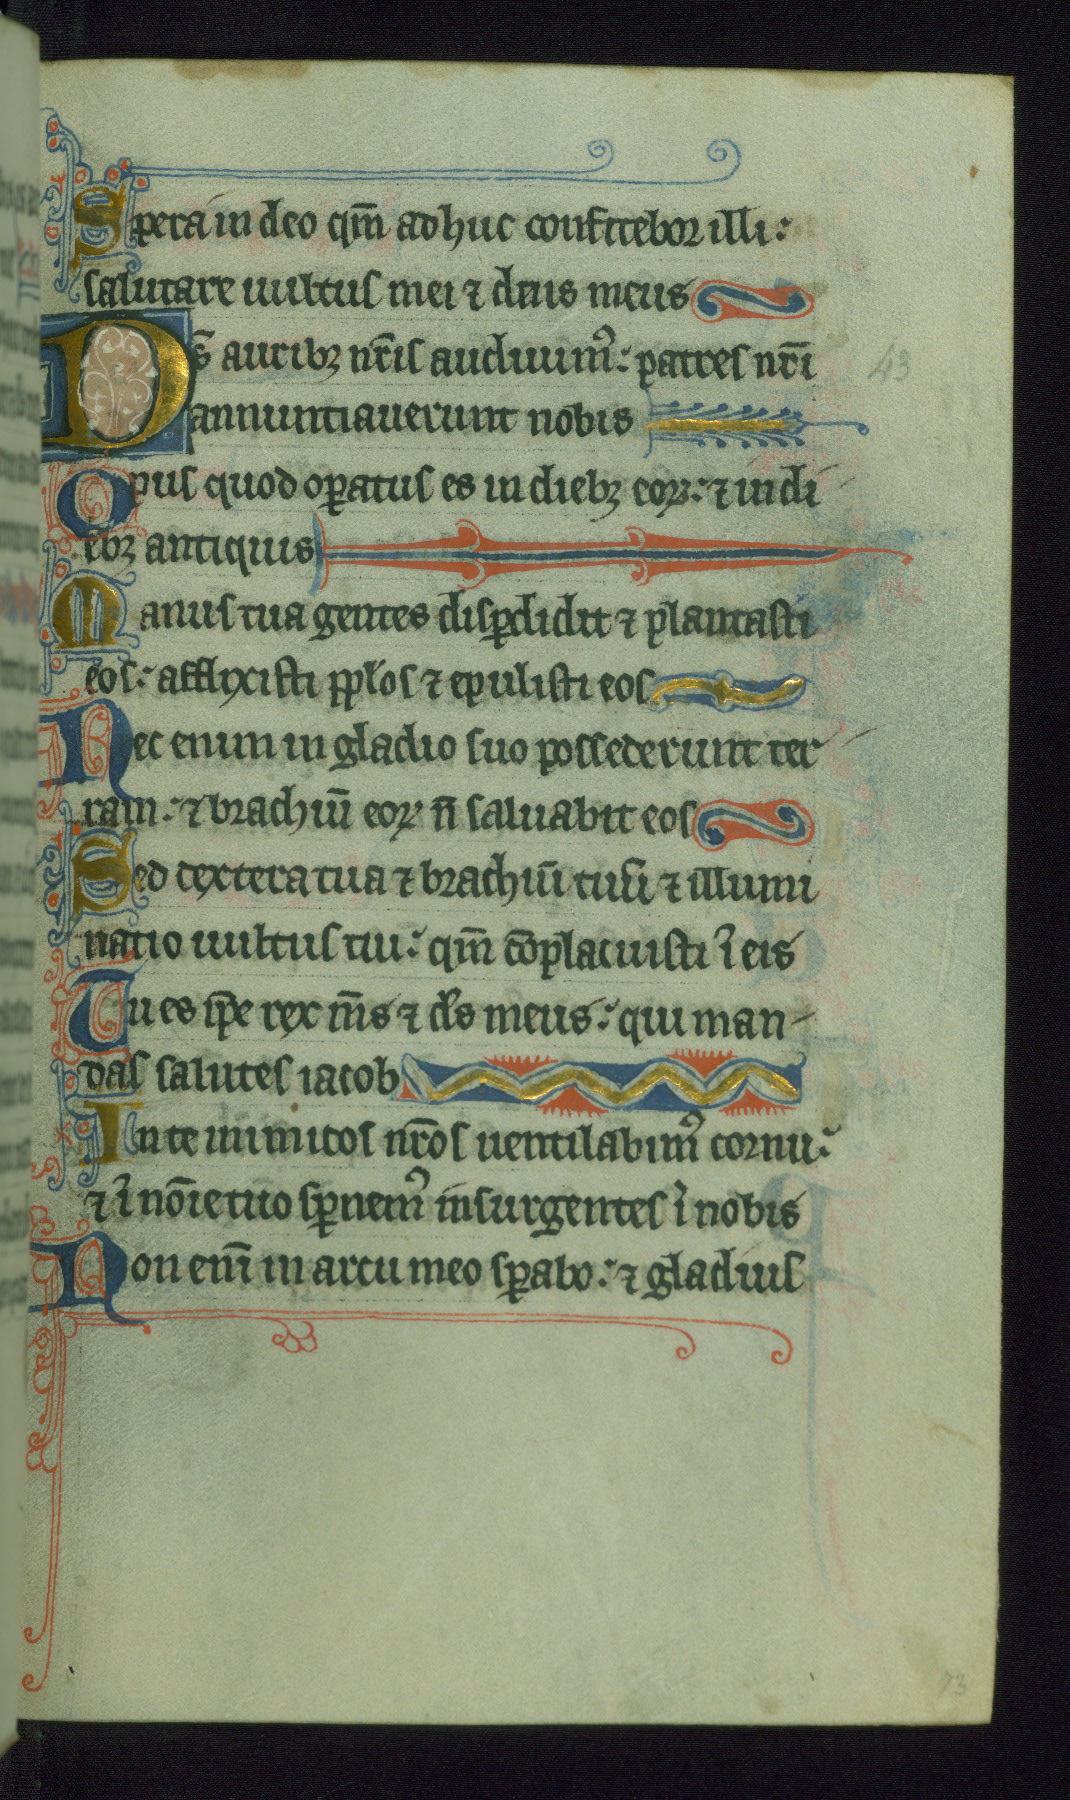 Spera in deo qm̄ adhuc confitebor illi:
salutare uultus mei ⁊ deus meus
Ds̄ auribꝫ nr̄is audiuimꝰ: patres nr̄i 43
annuntiauerunt nobis
Opus quod oꝑatus es in diebꝫ eoꝝ: ⁊ in di
ebꝫ antiquis
Manus tua gentes disꝑdidit ⁊ plantasti
eos: afflixisti pplo̅s ⁊ epulisti eos
Nec enim in gladio suo possederunt ter
ram: ⁊ brachiū eoꝝ n̄ saluabit eos
Sed dextera tua ⁊ brachiū tuū ⁊ illumi
natio uultus tui: qm̄ cōplacuisti ī eis
Tu es ip̄e rex m̄s ⁊ ds̄ meus: qui man-
das salutes iacob
In te inimicos nr̄os uentilabimꝰ cornu:
⁊ ī nōie tuo sꝑnemꝰ insurgentes ī nobis
Non enī in arcu meo sꝑabo: ⁊ gladius
73